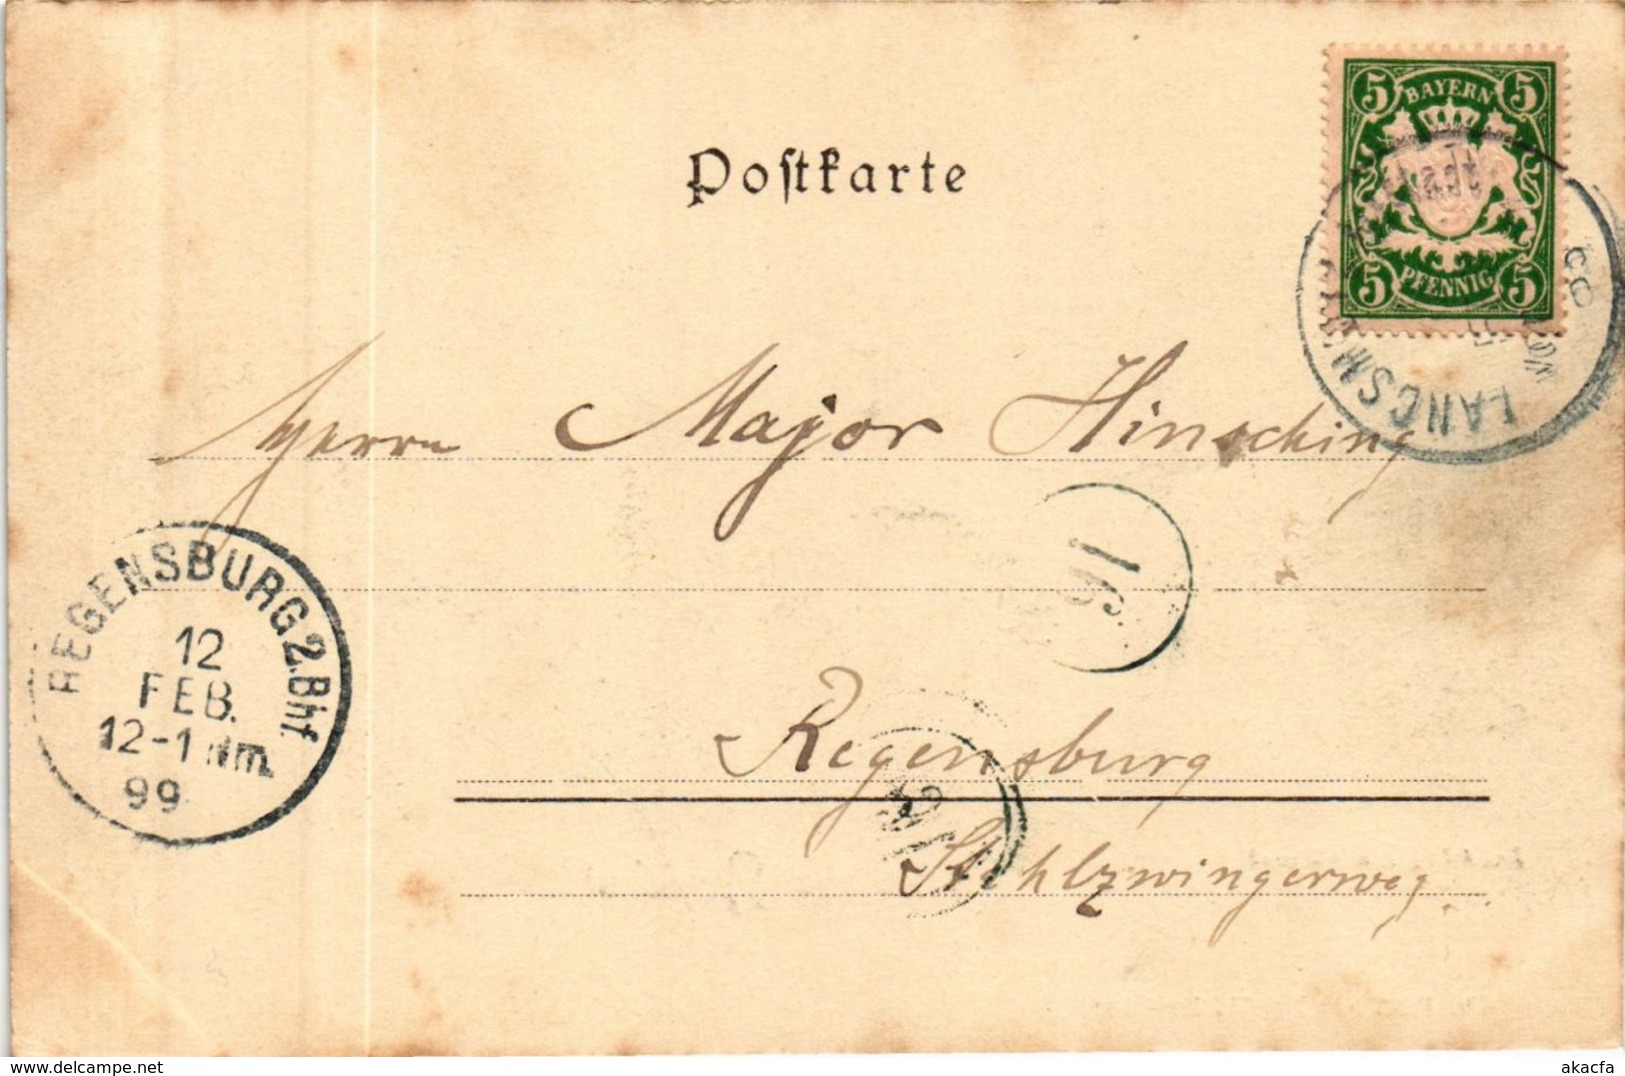 Postkarte
5 BAYERN 5
5 PFENNIG 5
Herrn Major Hinsching
REGENSBURG 2.Bhf.
12
FEB.
12-1 Nm.
99
91
Regensburg
Stahlzwingerweg.
akacfa